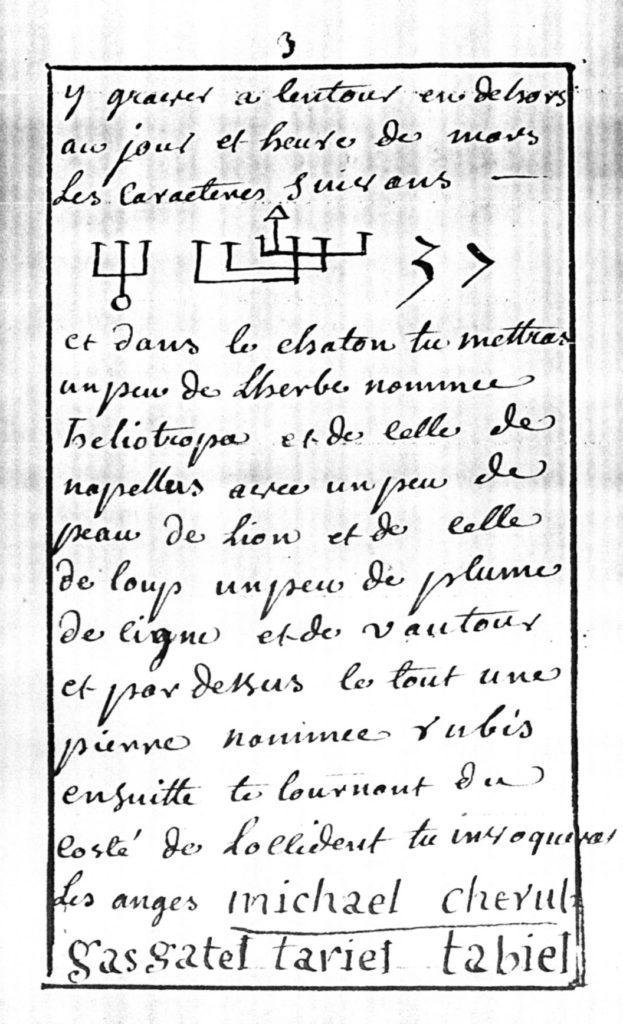 3
y graver a lentour en dehors
au jour et heure de mars
Les Caracteres suivans —
et dans le chaton tu mettras
un peu de Lherbe nommee
heliotropa et de celle de
napellus avec un peu de
peau de Lion et de celle
de loup un peu de plume
de cigne et de vautour
et par dessus le tout une
pierre nommee rubis
ensuitte te tournant du
costé de Loccident tu invoqueras
Les anges michael cherub
gasgatel tariel tabiel